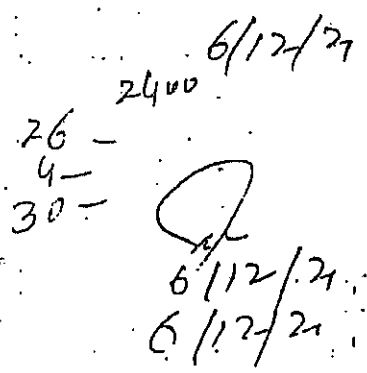 6/12/21
2400
26 -
4 -
30 -
6/12/21
6/12/21